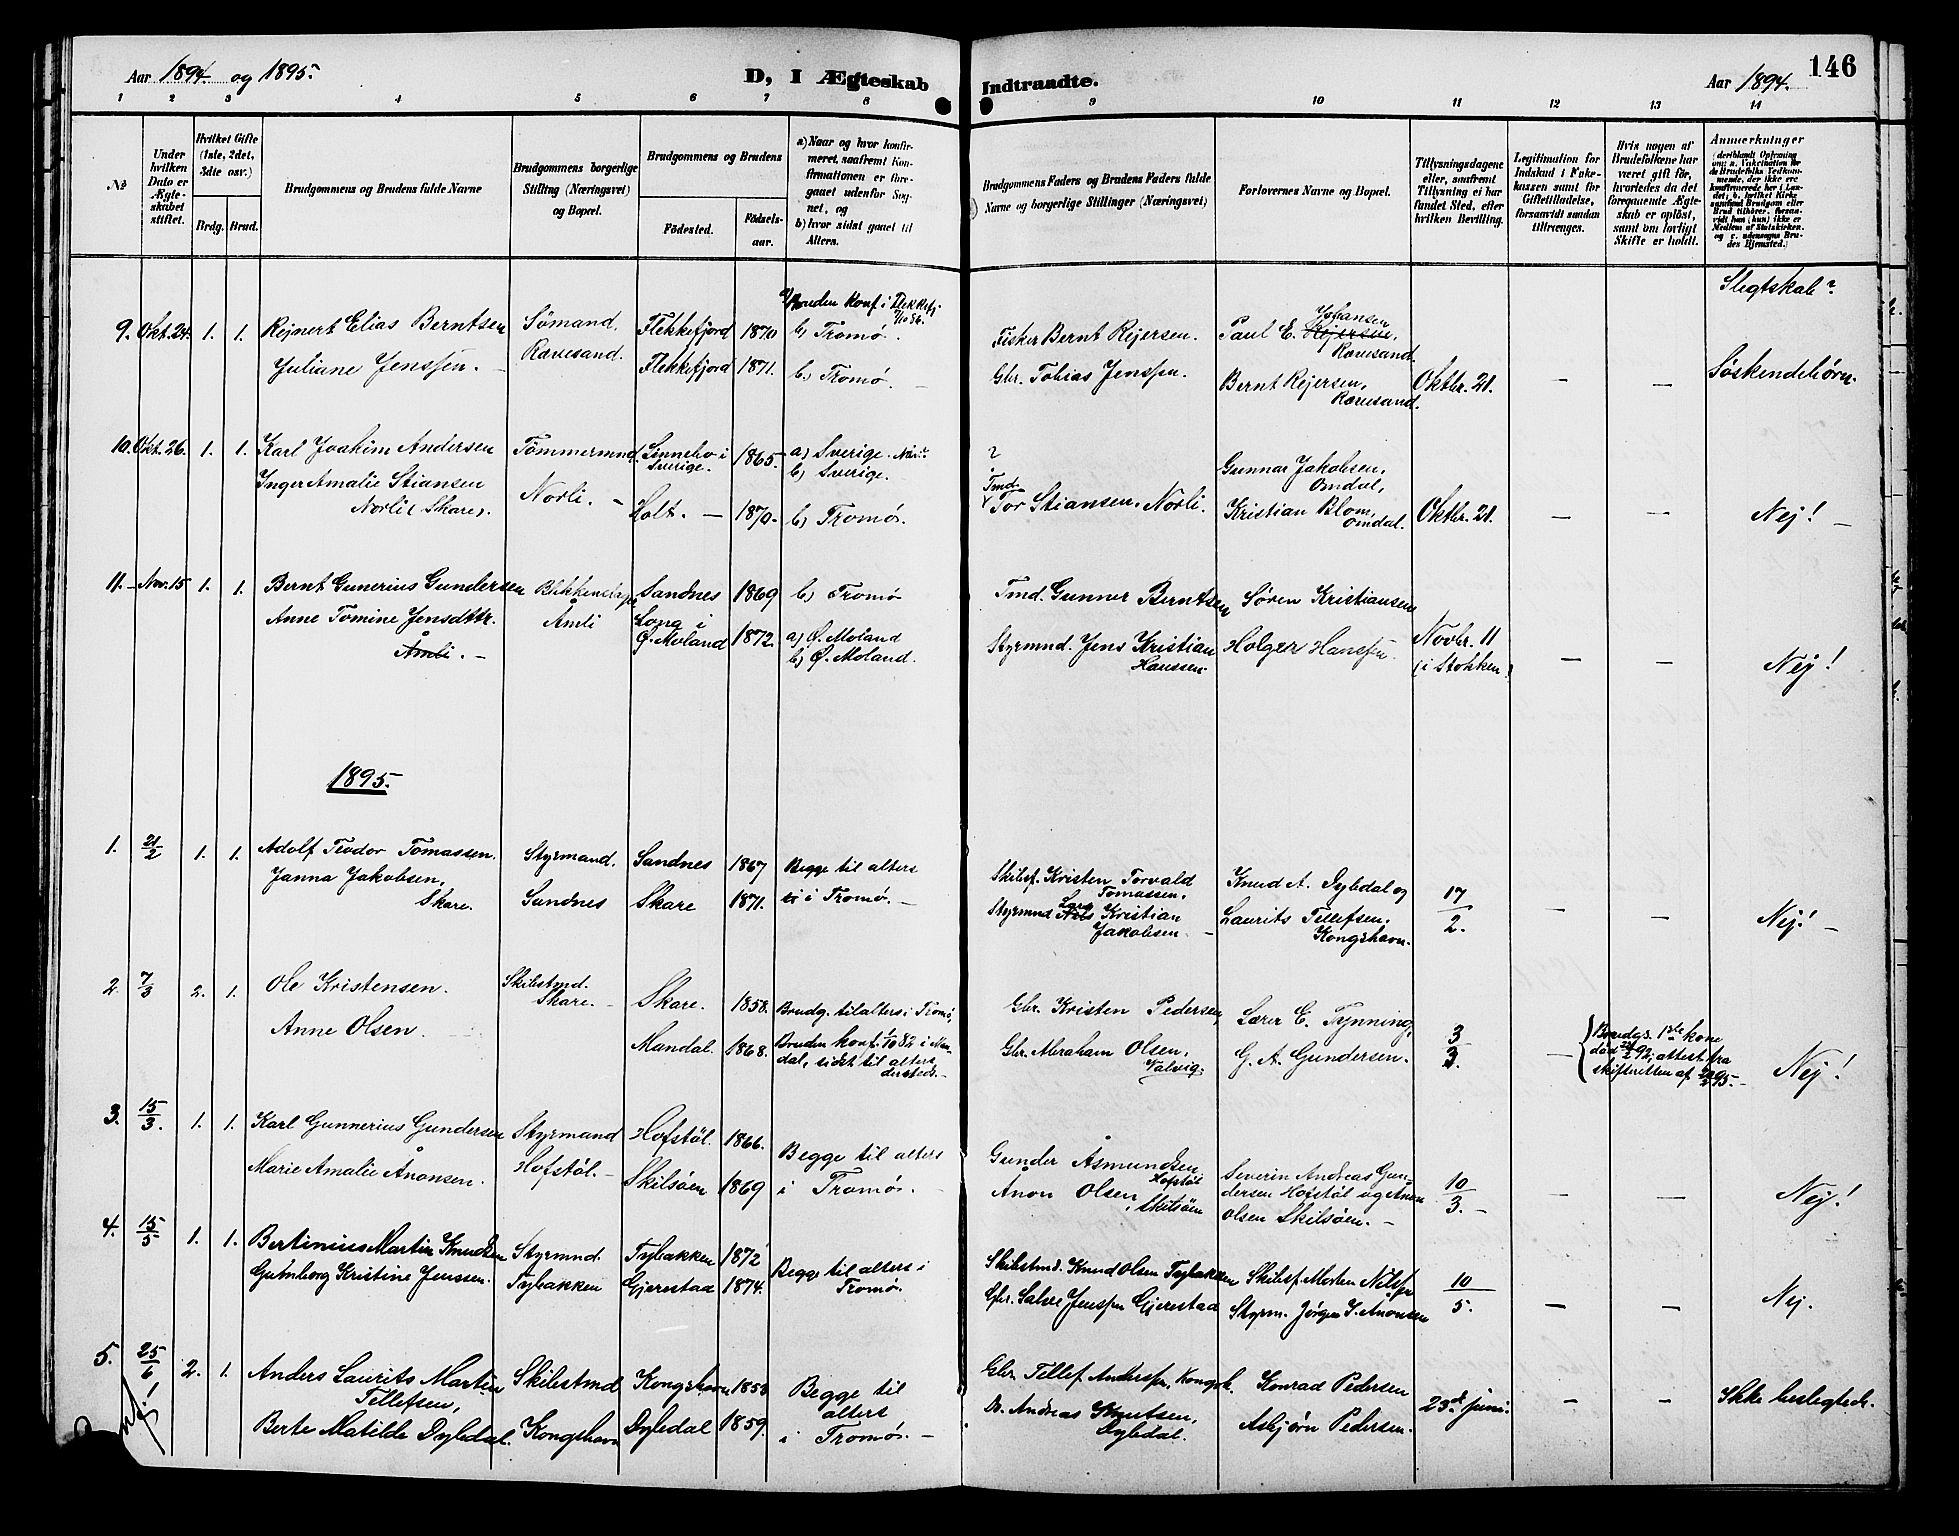 Aar 1894 og 1895.
D, I Ægteskab
Indtraadte.
Aar 1894.
146
1 2 3 4 5 6 7 8 9 10 11 12 13 14
№
Under hvilken Dato er Ægteskabet stiftet.
Hvilket Gifte (1ste, 2det, 3dte osv.)
Brdg. Brud.
Brudgommens og Brudens fulde Navne
Brudgommens borgerlige Stilling (Næringsvei) og Bopæl.
Brudgommens og Brudens
Fødested.
Fødselsaar.
a) Naar og hvor konfirmeret, saafremt Konfirmationen er foregaaet udenfor Sognet, og
b) hvor sidst gaaet til Alters.
Brudgommens Faders og Brudens Faders fulde Navne og borgerlige Stillinger (Næringsvei)
Forlovernes Navne og Bopæl.
Tillysningsdagene eller, saafremt Tillysning ei har fundet Sted, efter hvilken Bevilling.
Legitimation for Indskud i Enkekassen samt for Giftetilladelse, forsaavidt saadan tiltrænges.
Hvis nogen af Brudefolkene har været gift før, hvorledes da det foregaaende Ægteskab er opløst, samt om lovligt Skifte er holdt.
Anmerkninger
9. Okt. 24. 1. 1. Rejnert Elias Berntsen Sömand, Flekkefjord 1870 b) Tromø.
Juliane Jenssen. Rævesand. Flekkefjord 1871. b) Tromø.
a) Bruden konf. i Flekkefj.
Fisker Bernt Rejersen. Paul E. Johansen, Rævesand.
Gbr. Tobias Jenssen. Bernt Rejersen, Rævesand. Oktbr. 21. — — Slegtskab? Söskendebörn.
10. Okt. 26. 1. 1. Karl Joakim Andersen Tömmermnd. i Sverige. 1865. a) Sverige. b) Sverige.
Inger Amalie Stiansen Norli (Skare). Norli. Holt. 1870. b) Tromø.
? Gunnar Jakobsen, Omdal,
Tmd. Tor Stiansen, Norli. Kristian Blom, Omdal. Oktbr. 21. — — Nej!
11. Nov. 15 1. 1. Bernt Gunerius Gundersen Blikkenslager Sandnes 1869 b) Tromø
Anne Tomine Jensdttr. Åmli. Åmli Long i Ø. Moland 1872. a) Ø. Moland b) Ø. Moland.
Tmd. Gunner Berntsen Søren Kristiansen
Styrmnd. Jens Kristian Hanssen. Holger Hanssen. Novbr. 11 (i Stokken) — — Nej!
1895.
1. 21/2 1. 1. Adolf Teodor Tomassen. Styrmand. Sandnes 1867 Begge til alters
Janna Jakobsen, Skare. Sandnes Skare 1871. i Tromø.
Skibsf. Kristen Torvald Tomassen. Knud A. Dybdal og
Styrmnd Lars Kristian Jakobsen Laurits Tellefsen. Kongshavn. 17/2. — — Nej!
2. 7/3 2. 1. Ole Kristensen. Skibstmd. Skare. Skare. 1858. Brudg. til alters i Tromø,
Anne Olsen. Mandal. 1868. Bruden konf. 1/10 82 i Mandal, sidst til alters dersteds.
Gbr. Kristen Pedersen, Lærer E. Tynning,
Gbr. Abraham Olsen, Valvig. G. A. Gundersen. 3/3. — Brudgs. 1ste kone död 92; attest fra skifteretten af 95. Nej!
3. 15/3. 1. 1. Karl Gunnerius Gundersen Styrmand Hofstöl. 1866. Begge til alters
Marie Amalie Ånonsen. Hofstöl. Skilsöen 1869 i Tromø.
Gunder Åsmundsen Hofstöl Severin Andreas Gundersen Hofstöl og Anon
Anon Olsen, Skilsöen olsen Skilsöen. 10/3. — — Nej!
4. 15/5 1. 1. Bertinius Martin Knudsen Styrmnd. Tybakken 1872 Begge til alters i
Gunborg Kristine Jenssen. Tybakken Gjerestad 1874. Tromø.
Skibstmd. Knud Olsen Tybakken Skibsf. Morten Nilssen
Gbr. Salve Jenssen Gjerestad Styrm. Jörgen S. Anonsen 10/5. — — Nej.
5. 25/6 2. 1. Anders Laurits Martin Tellefsen, Skibstmd Kongshavn 1858 Begge til alters
Berte Matilde Dybdal. Kongshavn Dybdal 1859. i Tromø.
Gbr. Tellef Anderssen, Kongsh. Konrad Pedersen
Andreas Knutsen, Dybdal. Asbjørn Pedersen. 23d juni. — — Ikke beslegtede.